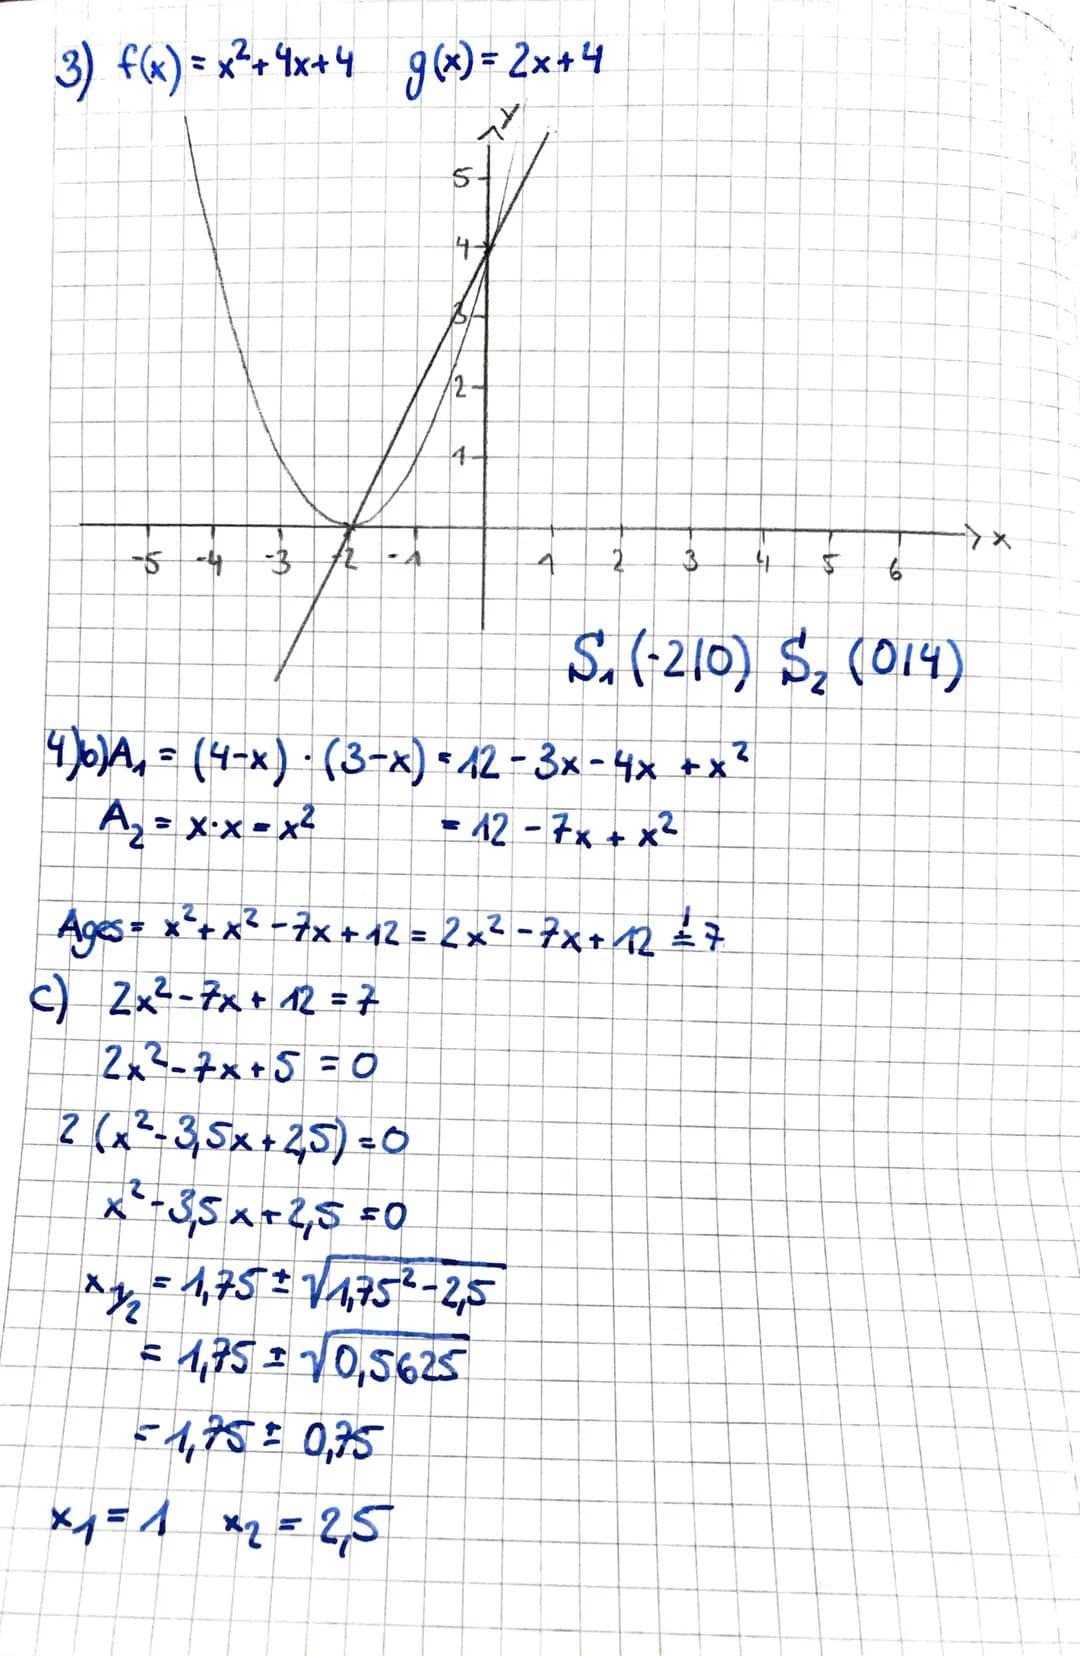 3) f(x) = x²+4x+4 g(x) = 2x+4
y
5
4
3
2
1
-5 -4 -3 -2 -1 1 2 3 4 5 6 x
S₁ (-2|0) S₂ (0|4)
4)b) A₁ = (4-x) · (3-x) = 12 - 3x - 4x + x²
A₂ = x·x = x² = 12 - 7x + x²
Ages = x² + x² - 7x + 12 = 2x² - 7x + 12 != 7
c) 2x² - 7x + 12 = 7
2x² - 7x + 5 = 0
2 (x² - 3,5x + 2,5) = 0
x² - 3,5x + 2,5 = 0
x₁/₂ = 1,75 ± √(1,75² - 2,5)
= 1,75 ± √0,5625
= 1,75 ± 0,75
x₁ = 1 x₂ = 2,5